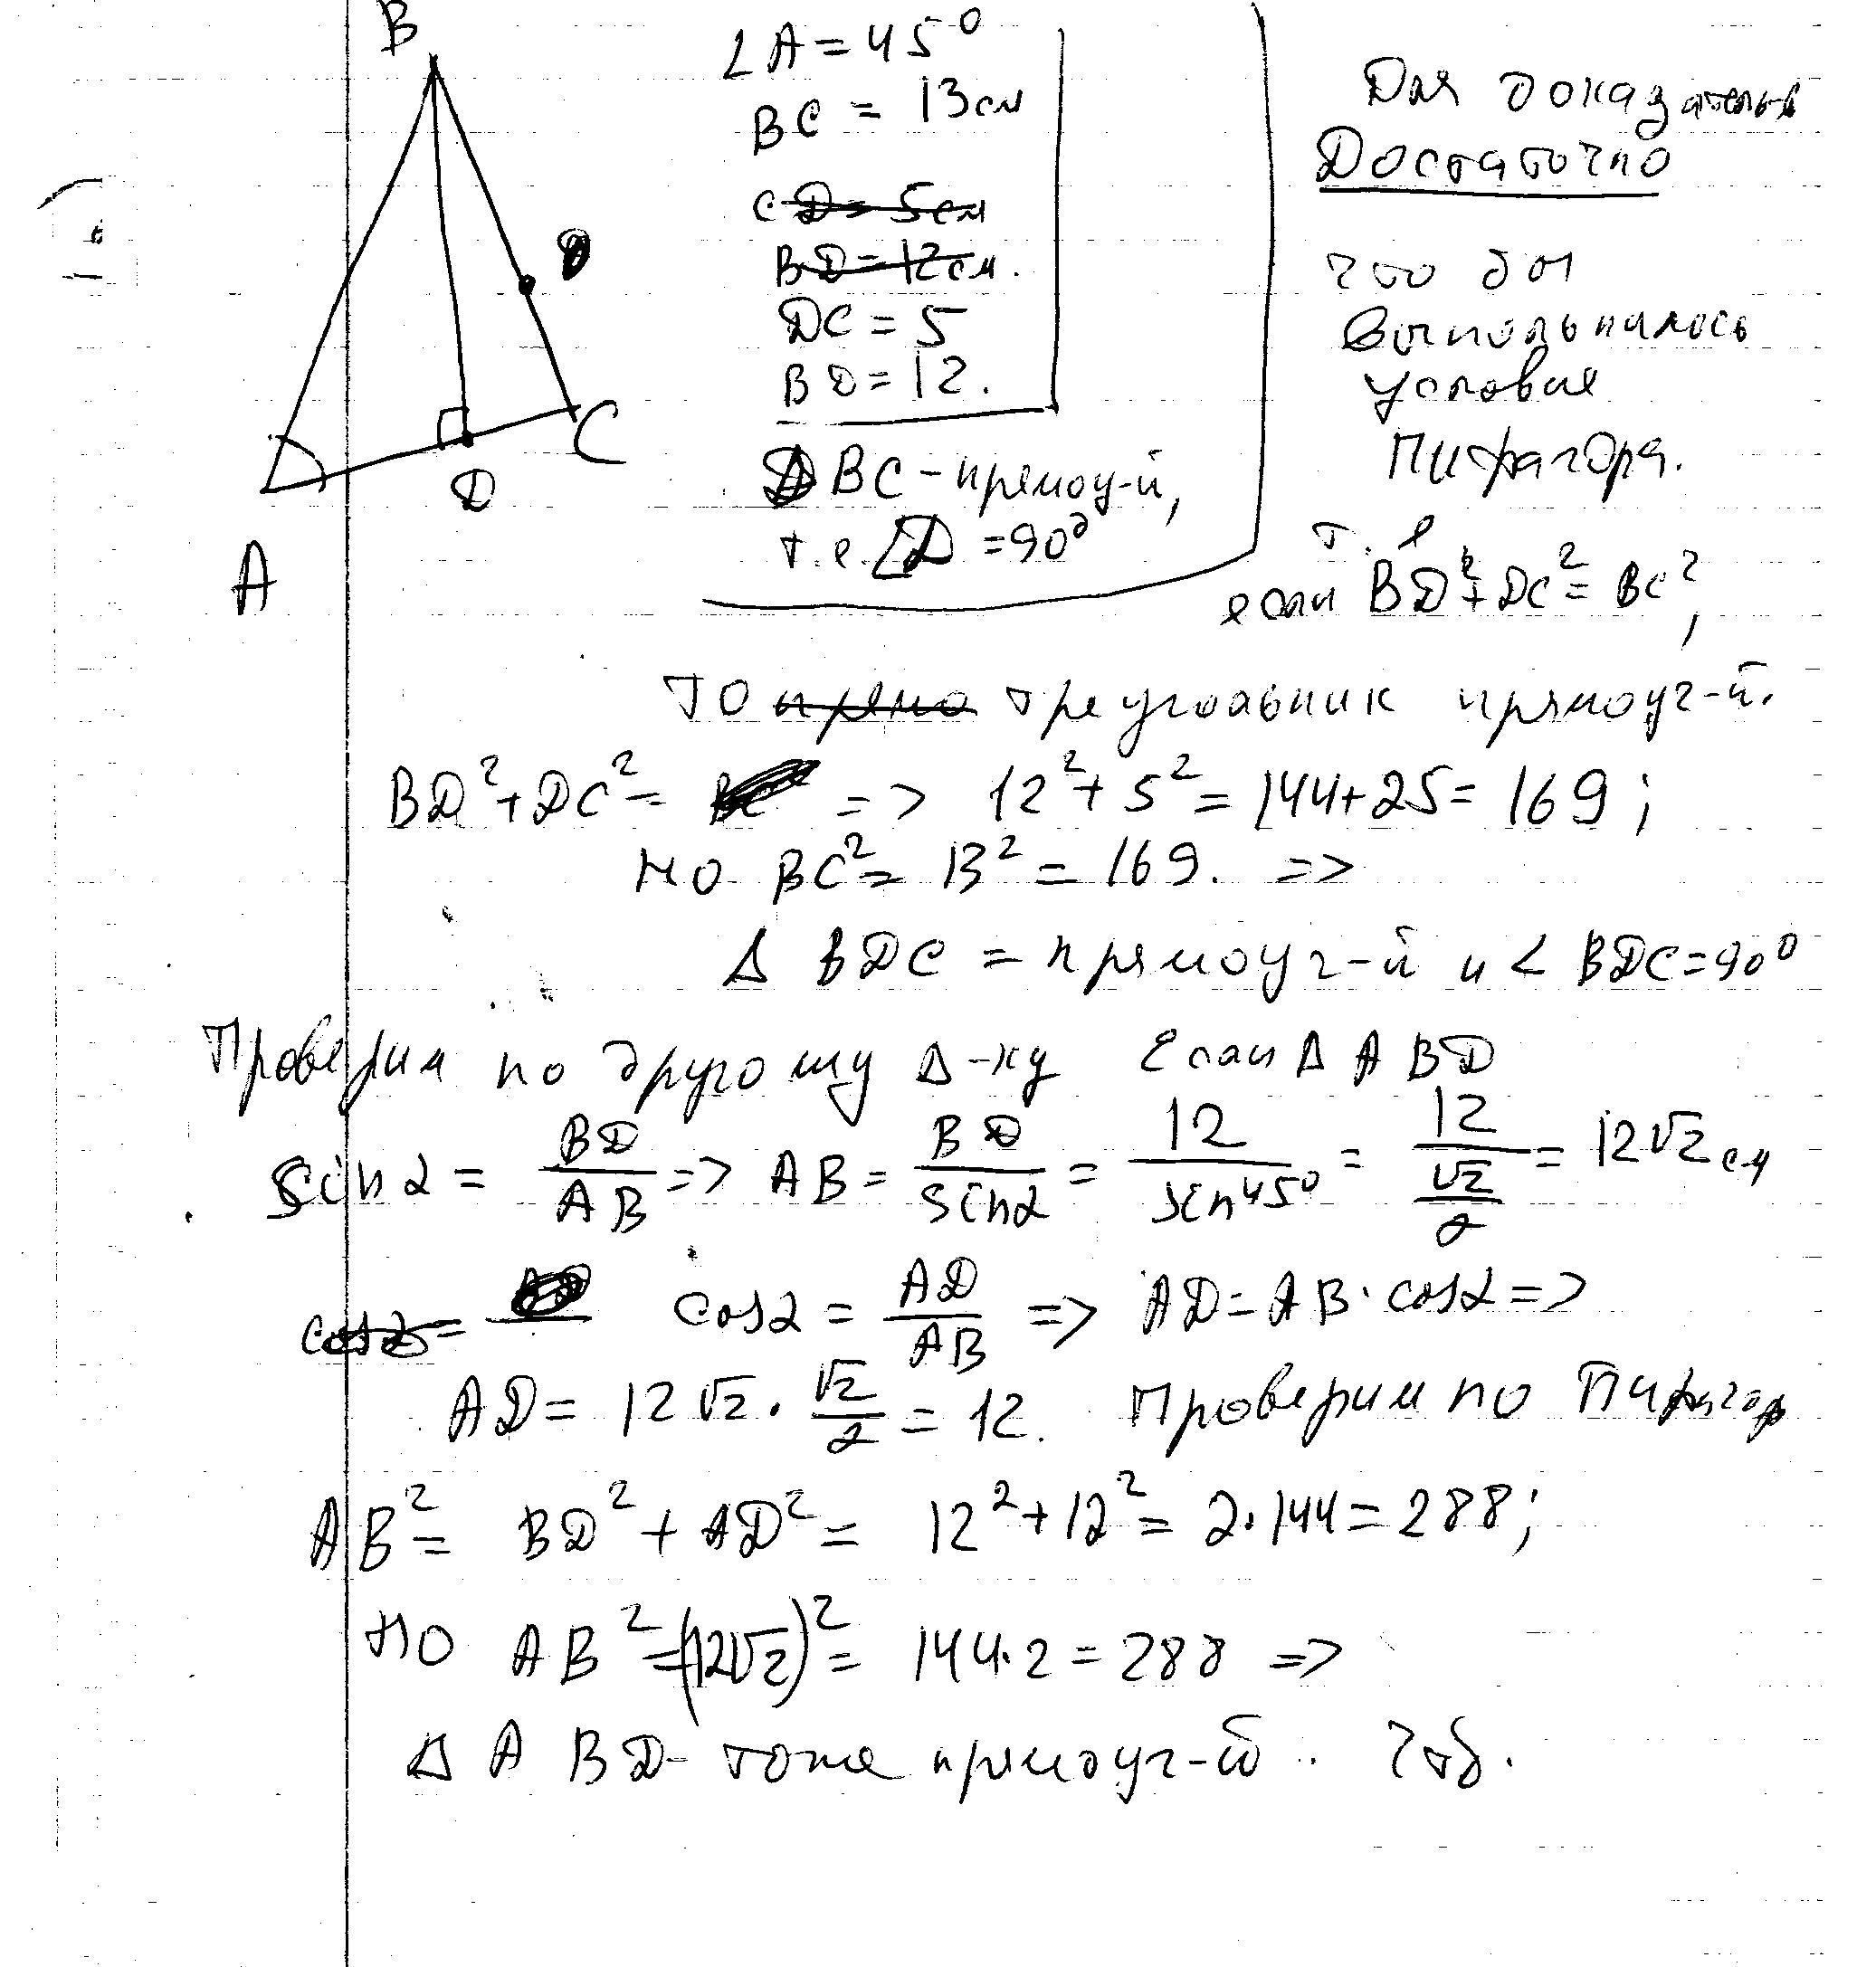 B
∠A = 45°
BC = 13см
CD = 5см
BD = 12см.
DC = 5
BD = 12.
DBC - прямоу-й,
т.е. ∠D = 90°
D
C
D
A
Для доказательв
Достаточно
что бы
выпольнилось
условия
Пифагора.
т. е
если BD²+DC² = BC²,
то прямо треугольник прямоуг-й.
BD²+DC² = => 12²+5² = 144+25 = 169;
но BC² = 13² = 169. =>
Δ BDC = прямоуг-й и < BDC = 90°
Проверим по другому Δ-ку Если Δ ABD
sin2 = BD/AB => AB = BD/sin2 = 12/sin45° = 12/(√2/2) = 12√2 см
cos2 = cos2 = AD/AB => AD = AB · cos2 =>
AD = 12√2 · √2/2 = 12. Проверим по Пифагор
AB² = BD² + AD² = 12²+12² = 2·144 = 288;
но AB² = (12√2)² = 144·2 = 288 =>
Δ ABD - тоже прямоуг-й. Чтд.